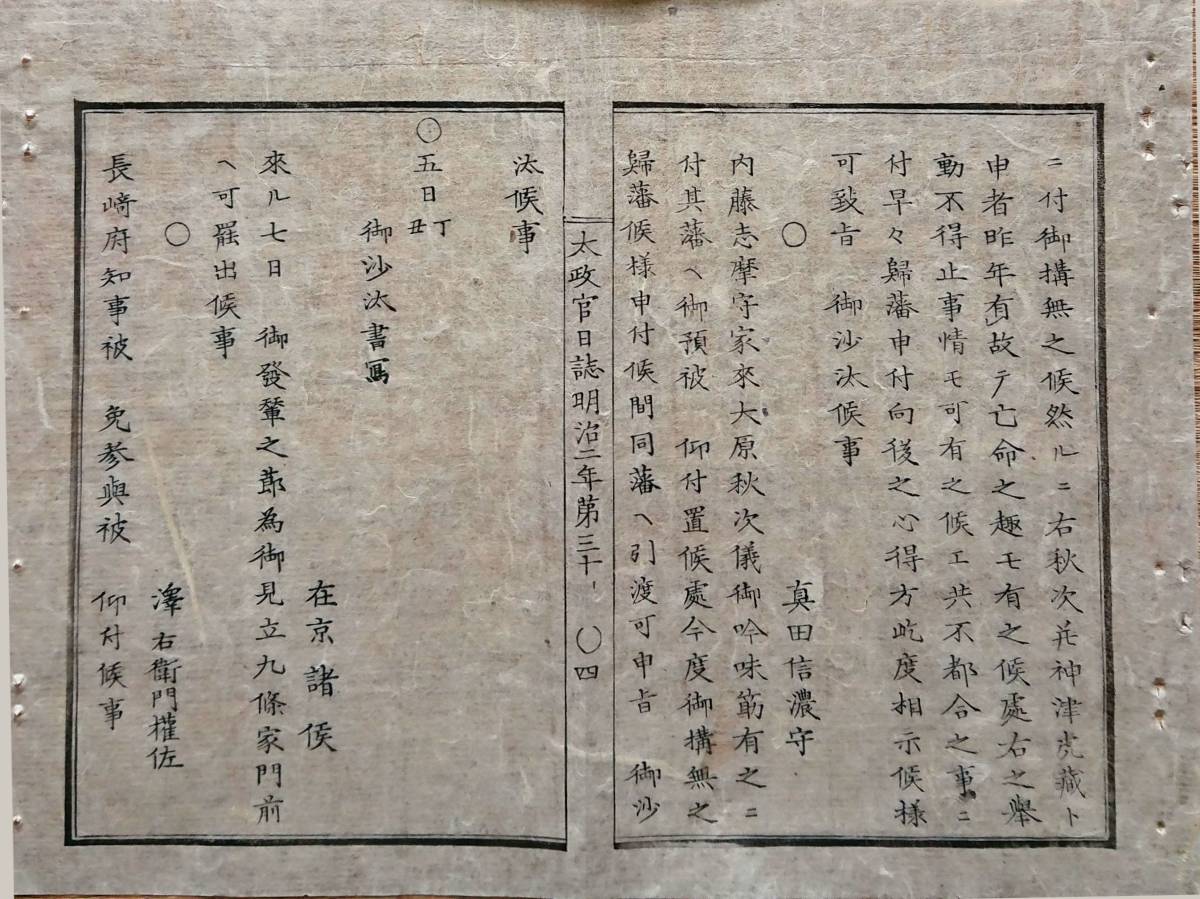 ニ付御搆無之候然ルニ右秋次幷神津虎藏ト
申者昨年有故テ亡命之趣モ有之候處右之舉
動不得止事情モ可有之候ヱ共不都合之事ニ
付早々歸藩申付向後之心得方屹度相示候樣
可致旨　御沙汰候事
〇　真田信濃守
内藤志摩守家來大原秋次儀御吟味筋有之ニ
付其藩ヘ御預被　仰付置候處今度御搆無之
歸藩候樣申付候間同藩ヘ引渡可申旨　御沙
太政官日誌明治二年第三十一　〇四
汰候事
〇五日丁丑
御沙汰書寫
在京諸侯
來ル七日　御發輦之節為御見立九條家門前
ヘ可罷出候事
〇　澤右衛門權佐
長﨑府知事被　免參與被　仰付候事